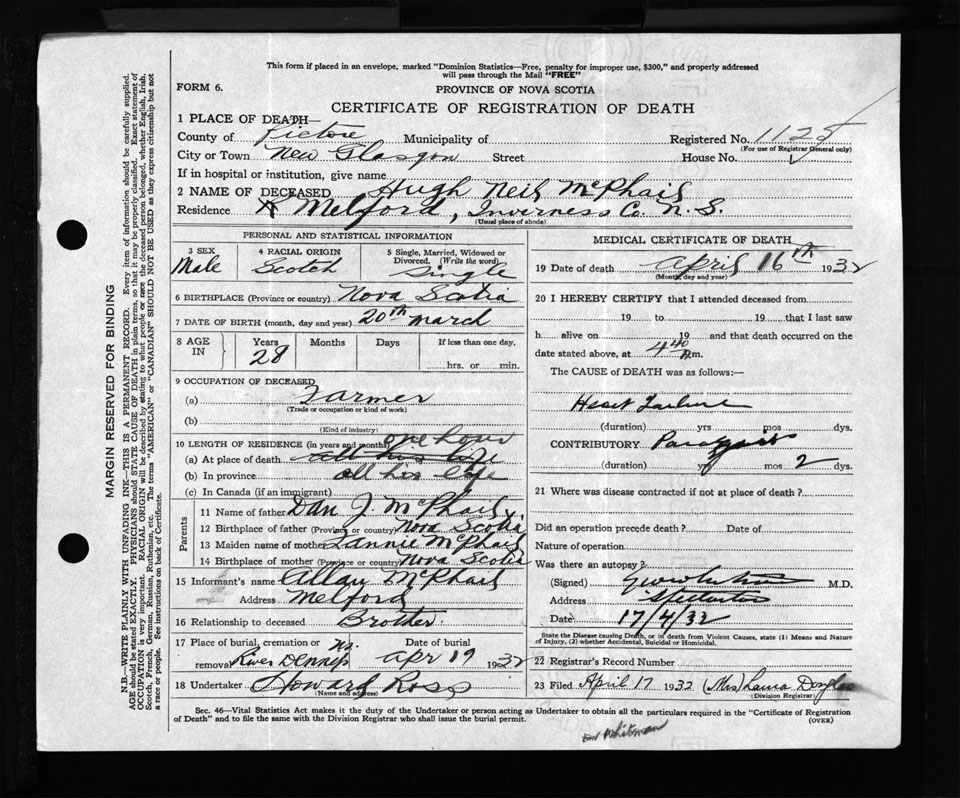 This form if placed in an envelope, marked "Dominion Statistics—Free, penalty for improper use, $300," and properly addressed
will pass through the Mail "FREE"
FORM 6.
PROVINCE OF NOVA SCOTIA
CERTIFICATE OF REGISTRATION OF DEATH
1 PLACE OF DEATH—
County of Pictou Municipality of Registered No. 1125
(For use of Registrar General only)
City or Town New Glasgow Street House No.
If in hospital or institution, give name
2 NAME OF DECEASED Hugh Neil McPhail
Residence Melford, Inverness Co. N. S.
(Usual place of abode)
PERSONAL AND STATISTICAL INFORMATION
3 SEX Male
4 RACIAL ORIGIN Scotch
5 Single, Married, Widowed or
Divorced. (Write the word)
Single
6 BIRTHPLACE (Province or country) Nova Scotia
7 DATE OF BIRTH (month, day and year) 20th March
8 AGE IN
Years Months Days If less than one day.
28 hrs. or min.
9 OCCUPATION OF DECEASED
(a) Farmer
(Trade or occupation or kind of work)
(b)
(Kind of industry)
10 LENGTH OF RESIDENCE (in years and months) one hour
(a) At place of death all his life
(b) In province all his life
(c) In Canada (if an immigrant)
Parents
11 Name of father Dan J. McPhail
12 Birthplace of father (Province or country) Nova Scotia
13 Maiden name of mother McPhail
14 Birthplace of mother (Province or country) Nova Scotia
15 Informant's name Allan McPhail
Address Melford
16 Relationship to deceased Brother
17 Place of burial, cremation or Date of burial
removal River Dennis Apr 19 1932
18 Undertaker Howard Ross
(Name and address)
MEDICAL CERTIFICATE OF DEATH
19 Date of death April 16th 1932
(Month, day and year)
20 I HEREBY CERTIFY that I attended deceased from
19 to 19 that I last saw
h alive on 19 and that death occurred on the
date stated above, at 4 40 m.
The CAUSE of DEATH was as follows:
Heart Failure
(duration) yrs mos dys.
CONTRIBUTORY
(duration) yrs mos 2 dys.
21 Where was disease contracted if not at place of death?
Did an operation precede death? Date of
Nature of operation
Was there an autopsy?
(Signed) M.D.
Address Stellarton
Date 17/4/32
State the Disease causing Death, or in death from Violent Causes, state (1) Means and Nature
of Injury, (2) whether Accidental, Suicidal or Homicidal.
22 Registrar's Record Number
23 Filed April 17 1932 (Mrs) Laura Douglas
(Division Registrar)
Sec. 46—Vital Statistics Act makes it the duty of the Undertaker or person acting as Undertaker to obtain all the particulars required in the "Certificate of Registration
of Death" and to file the same with the Division Registrar who shall issue the burial permit.
(OVER)
Dr Whitman
MARGIN RESERVED FOR BINDING
N.B.—WRITE PLAINLY WITH UNFADING INK—THIS IS A PERMANENT RECORD. Every item of information should be carefully supplied.
AGE should be stated EXACTLY. PHYSICIANS should STATE CAUSE OF DEATH in plain terms, so that it may be properly classified. Exact statement of
OCCUPATION is very important. RACIAL ORIGIN will be described by stating to what people or race the deceased person belonged, whether English, Irish,
Scotch, French, German, Russian, Ruthenian, etc. The terms "AMERICAN" or "CANADIAN" SHOULD NOT BE USED as they express citizenship but not
a race or people. See instructions on back of Certificate.